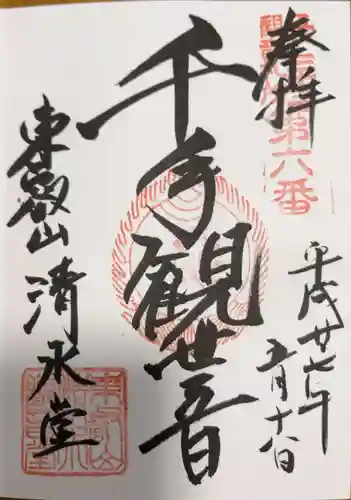 奉拝
第六番
平成廿七年
五月十八日
千手観世音
東叡山清水堂